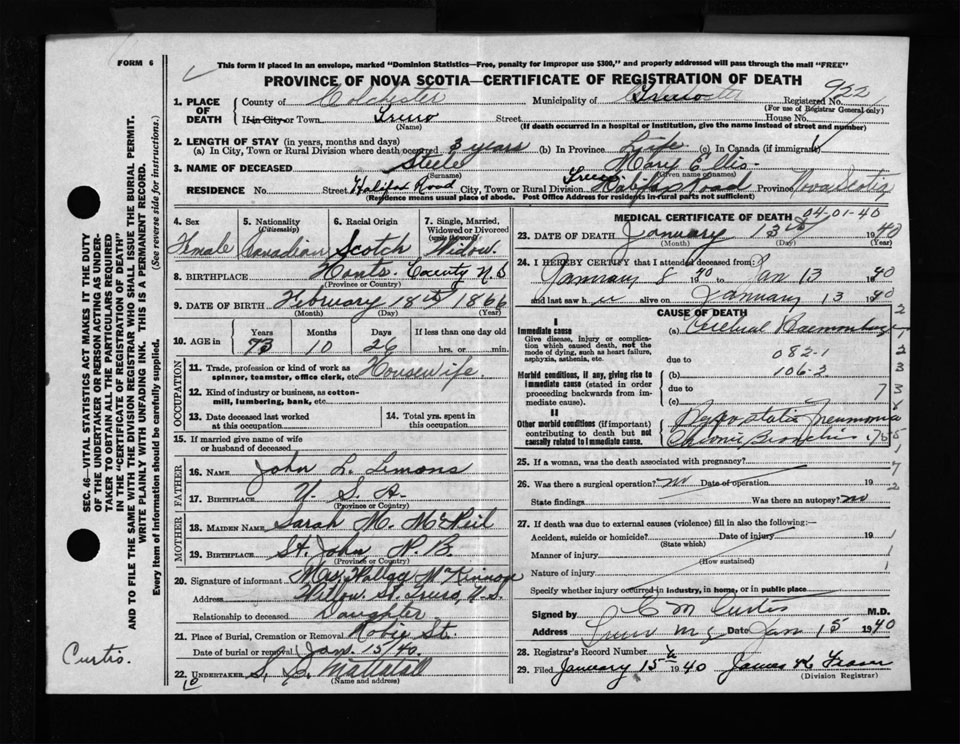 FORM 6
This form if placed in an envelope, marked "Dominion Statistics—Free, penalty for improper use $300," and properly addressed will pass through the mail "FREE"
PROVINCE OF NOVA SCOTIA—CERTIFICATE OF REGISTRATION OF DEATH
1. PLACE OF DEATH County of Colchester Municipality of Registered No. 952
(For use of Registrar General only)
If in City or Town Truro Street House No.
(Name) (If death occurred in a hospital or institution, give the name instead of street and number)
2. LENGTH OF STAY (in years, months and days)
(a) In City, Town or Rural Division where death occurred 8 years (b) In Province Life (c) In Canada (if immigrant)
3. NAME OF DECEASED Steele Mary Ellis
(Surname) (Given name or names)
RESIDENCE No. Street Halifax Road City, Town or Rural Division Truro Halifax Road Province Nova Scotia
(Residence means usual place of abode. Post Office Address for residents in rural parts not sufficient)
4. Sex 5. Nationality (Citizenship) 6. Racial Origin 7. Single, Married, Widowed or Divorced (write the word)
Female Canadian Scotch Widow
8. BIRTHPLACE Hants County N.S
(Province or Country)
9. DATE OF BIRTH February 18th 1866
(Month) (Day) (Year)
10. AGE in Years Months Days If less than one day old
73 10 26 hrs. or min.
OCCUPATION
11. Trade, profession or kind of work as spinner, teamster, office clerk, etc. Housewife
12. Kind of industry or business, as cotton-mill, lumbering, bank, etc.
13. Date deceased last worked at this occupation 14. Total yrs. spent in this occupation
15. If married give name of wife or husband of deceased
FATHER
16. NAME John L. Limons
17. BIRTHPLACE U. S. A.
(Province or Country)
MOTHER
18. MAIDEN NAME Sarah M. McNeil
19. BIRTHPLACE St. John N. B.
(Province or Country)
20. Signature of informant Mrs. Wallace McKinnon
Address Willow St. Truro, N.S.
Relationship to deceased Daughter
21. Place of Burial, Cremation or Removal Robie St.
Date of burial or removal Jan. 15/40.
22. UNDERTAKER Mattatall
(Name and address)
MEDICAL CERTIFICATE OF DEATH 04-01-40
23. DATE OF DEATH January 13th 1940
(Month) (Day) (Year)
24. I HEREBY CERTIFY that I attended deceased from:
January 8 1940 to Jan 13 1940
and last saw h er alive on January 13 1940
CAUSE OF DEATH
I
Immediate cause (a) Cerebral Haemorrhage
Give disease, injury or complication which caused death, not the mode of dying, such as heart failure, asphyxia, asthenia, etc.
due to 082-1
Morbid conditions, if any, giving rise to immediate cause (stated in order proceeding backwards from immediate cause).
(b) 106-2
due to
(c)
II
Other morbid conditions (if important) contributing to death but not causally related to immediate cause.
Hypostatic Pneumonia
Chronic Bronchitis
25. If a woman, was the death associated with pregnancy?
26. Was there a surgical operation? no Date of operation 19
State findings Was there an autopsy? no
27. If death was due to external causes (violence) fill in also the following:—
Accident, suicide or homicide? Date of injury 19
(State which)
Manner of injury
(How sustained)
Nature of injury
Specify whether injury occurred in industry, in home, or in public place
Signed by C M Curtis M.D.
Address Truro N S Date Jan 15 1940
28. Registrar's Record Number
29. Filed January 15 1940 James Fraser
(Division Registrar)
SEC. 46—VITAL STATISTICS ACT MAKES IT THE DUTY
OF THE UNDERTAKER OR PERSON ACTING AS UNDER-
TAKER TO OBTAIN ALL THE PARTICULARS REQUIRED
IN THE "CERTIFICATE OF REGISTRATION OF DEATH"
AND TO FILE THE SAME WITH THE DIVISION REGISTRAR WHO SHALL ISSUE THE BURIAL PERMIT.
WRITE PLAINLY WITH UNFADING INK. THIS IS A PERMANENT RECORD.
Every item of Information should be carefully supplied. (See reverse side for instructions.)
Curtis.